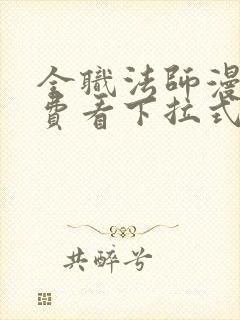 全職法師漫
費看下拉式
共醉兮